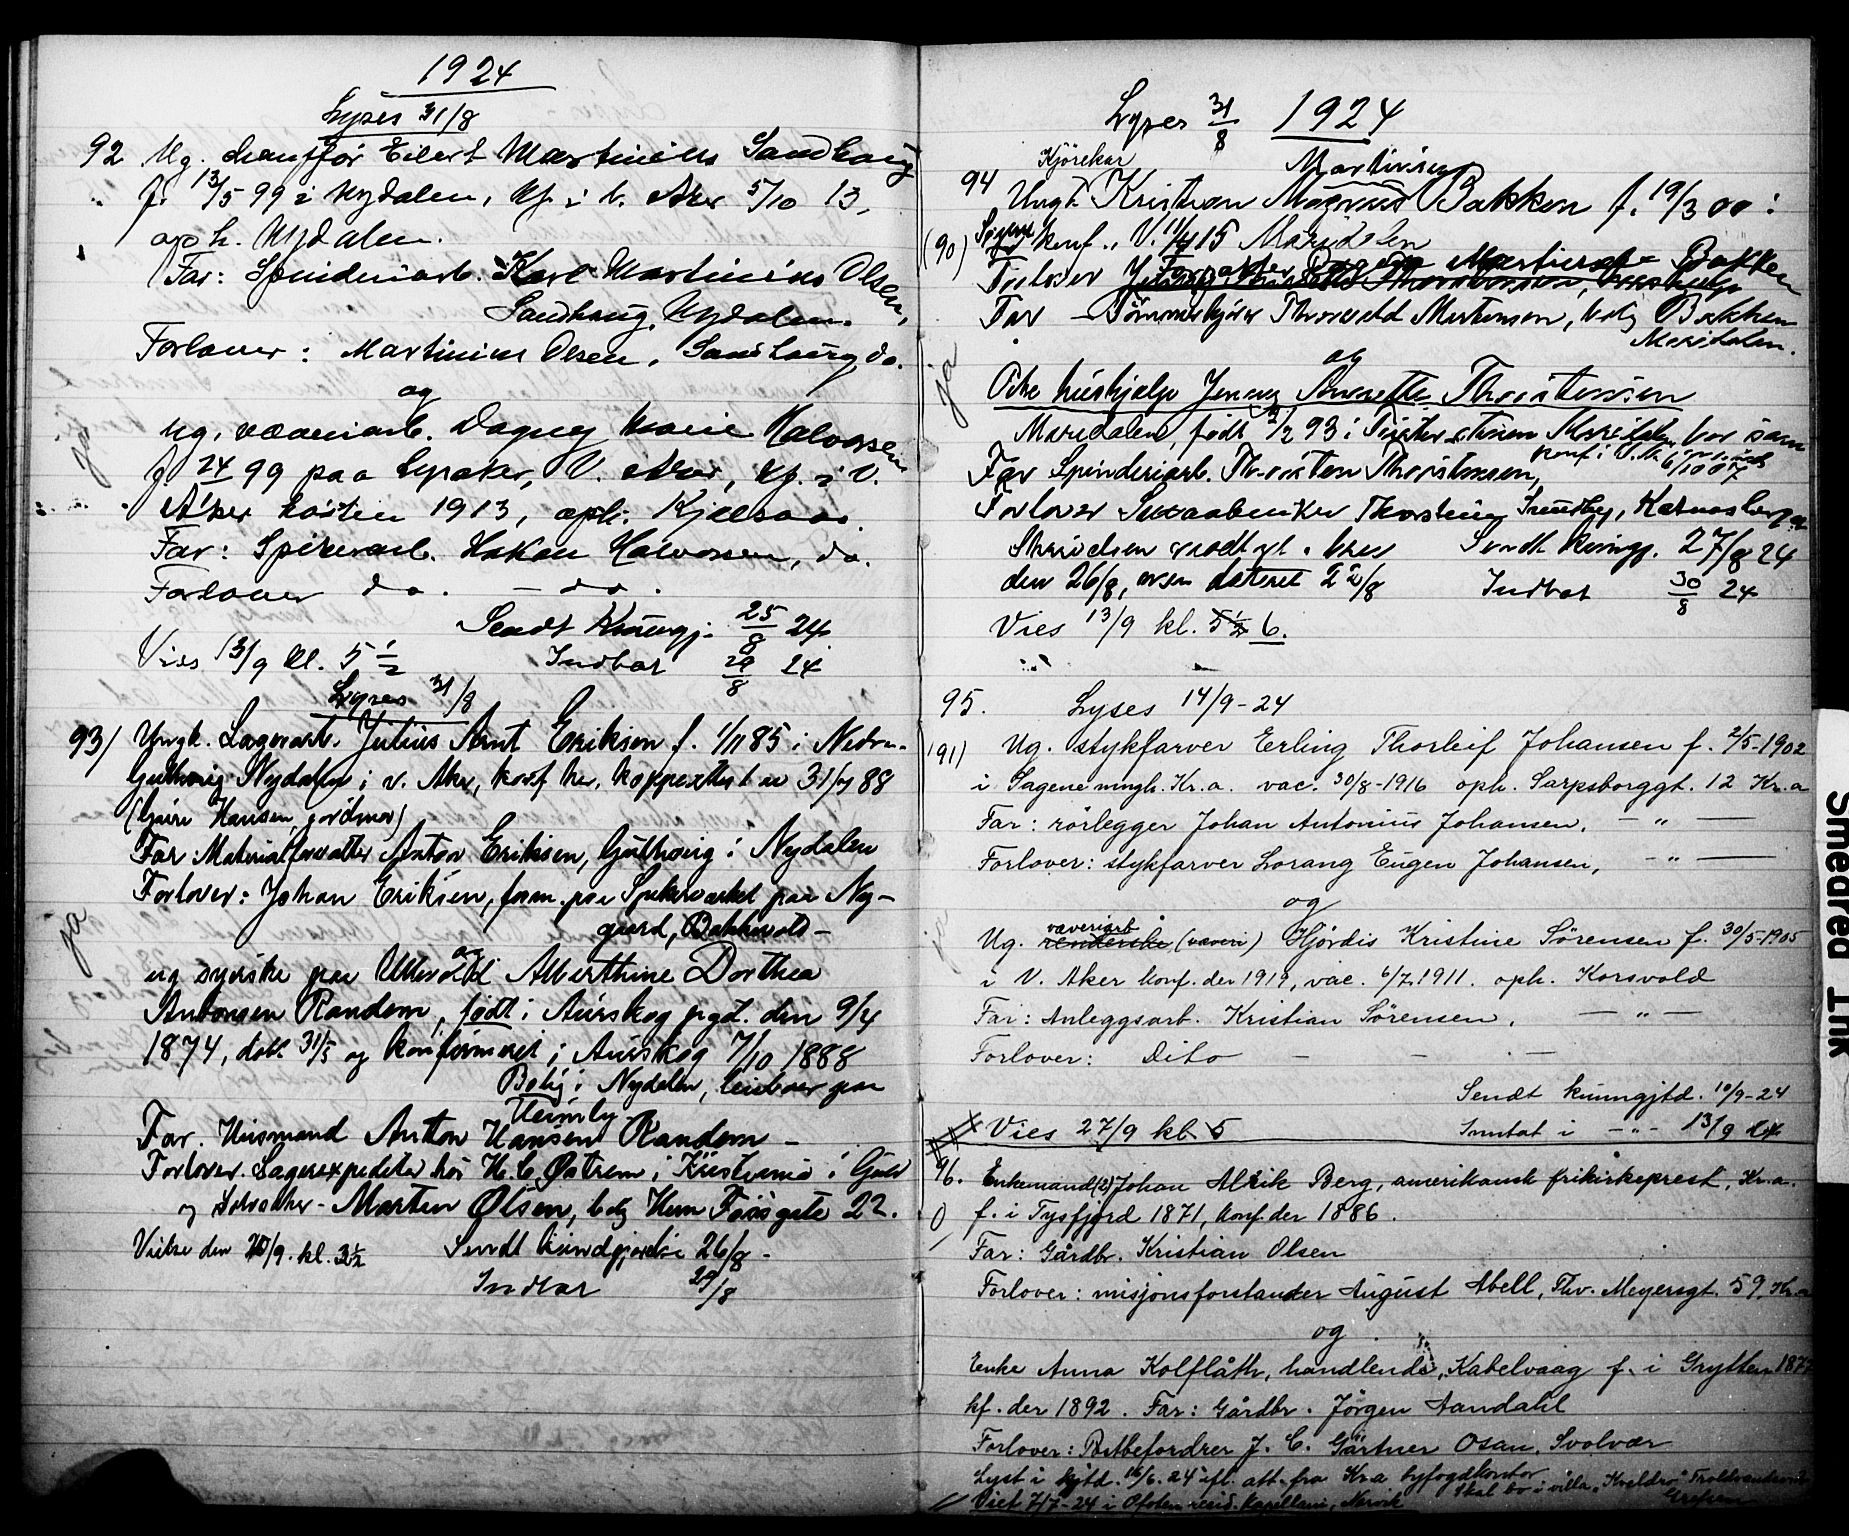 1924
Lyses 31/8
92 Ug. chauffør Eilert Martinius Sandhaug
f. 13/5 99 i Nydalen, kf. i V. Aker 5/10 13,
oph. Nydalen.
Far: Spinderiarb. Karl Martinius Olsen,
Sandhaug, Nydalen.
Forlover: Martinius Olsen, Sandhaug, do.
og
ja
Ug. væveriarb. Dagny Marie Halvorsen
f. 99 paa V. Aker, kf. i V.
Aker høsten 1913, oph. Kjelsaas.
Far: Spikerarb. Hakon Halvorsen, do.
Forlover do. — do.
Sendt Kunngj. 25/8 24
Vies 13/9 kl. 5 1/2 Indtat 29/8 24
Lyses 31/8
93) Ungk. Lagerarb. Julius Arnt Eriksen f. 1/11 85 i Nedre-
Gulhaug Nydalen i v. Aker, konf. her, koppeattest av 31/7 88
(Guri Hansen, jordmor)
Far: Materialforvalter Anton Eriksen, Gulhaug i Nydalen
Forlover: Johan Eriksen, form. paa Spikerverket paa Ny-
gaard, Bakkevold —
ja
og
ug syerske paa Ullevold Alberthine Dorthea
Antonsen Randem, født i Aurskog prgd. den 9/4
1874, døbt 31/5 og konfirmeret i Aurskog 7/10 1888
Bolig i Nydalen, leiboer paa
Heimly
Far. Husmand Anton Hansen Randem —
Forlover. Lagerexpeditør hos H. C. Østrem i Kristiania i
og - Marten Olsen, bolig Herm Fossgate 22.
Vielse den /9. kl. 3 1/2 Sendt kundgjørelse 26/8 —
Indtat 29/8
Lyses 31/8 1924
Kjørekar Martinius
94 Ungk. Kristian Magnus Bakken f. 19/3 00 i
(90) Sogn konf. i V. 11/4 15 Maridalen
Forlover Martinsen Bakken
Far — Tømmerkjører Thorvald Martinsen, bolig Bakken
Maridalen.
ja
og
Pike hushjelp Jenny Annette Thorstensen
Maridalen, født 2/2 93 i Maridalen, bor sam
konf. i V. A. 6/10 07
Far Spinderiarb. Thorsten Thorstensen,
Forlover Thorstein Sundby,
Skrivelsen modtat. brev Sendt kunngj. 27/8 24
den 26/8, men dateret 22/8 Indtat 30/8 24
Vies 13/9 kl. 5 1/2 6.
95. Lyses 14/9-24
(91) Ug. stykfarver Erling Thorleif Johansen f. 2/5-1902
i Sagene mngh. Kr.a. vac. 30/8-1916 oph. Sarpsborggt. 12 Kr.a
Far: rørlegger Johan Antonius Johansen, — " —
Forlover: stykfarver Lorang Eugen Johansen, — " —
og
væveriarb
Ug. (væveri) Hjørdis Kristine Sørensen f. 30/5-1905
i V. Aker konf. der 1919, vac. 6/7 1911. oph. Korsvold
Far: Anleggsarb. Kristian Sørensen, — " —
Forlover: Dito — — —
Sendt kunngjtd. 10/9-24
Vies 27/9 kl. 5 Inntat i —"— 13/9 24
96. Enkemand (2) Johan Alrik Berg, amerikansk frikirkeprest, Kr.a.
0) f. i Tysfjord 1871, konf. der 1886.
Far: Gårdbr. Kristian Olsen
Forlover: misjonsforstander August Abell, Thv. Meyersgt. 59, Kr.a
og
Enke Anna Kolflåth, handlende, Kabelvaag f. i Grytten 187
kf. der 1892. Far: Gårdbr. Jørgen Aandahl
Forlover: Postbefordrer J. C. Gärtner Osan, Svolvær
Lyst i kjtd. 16/6. 24 ifl. att. fra Kr.a byfogdkontor. Skal bo i villa "Kveldro"
Grefsen
Viet 7/7-24 i Ofoten resid. kapellani, Narvik
Smeared Ink